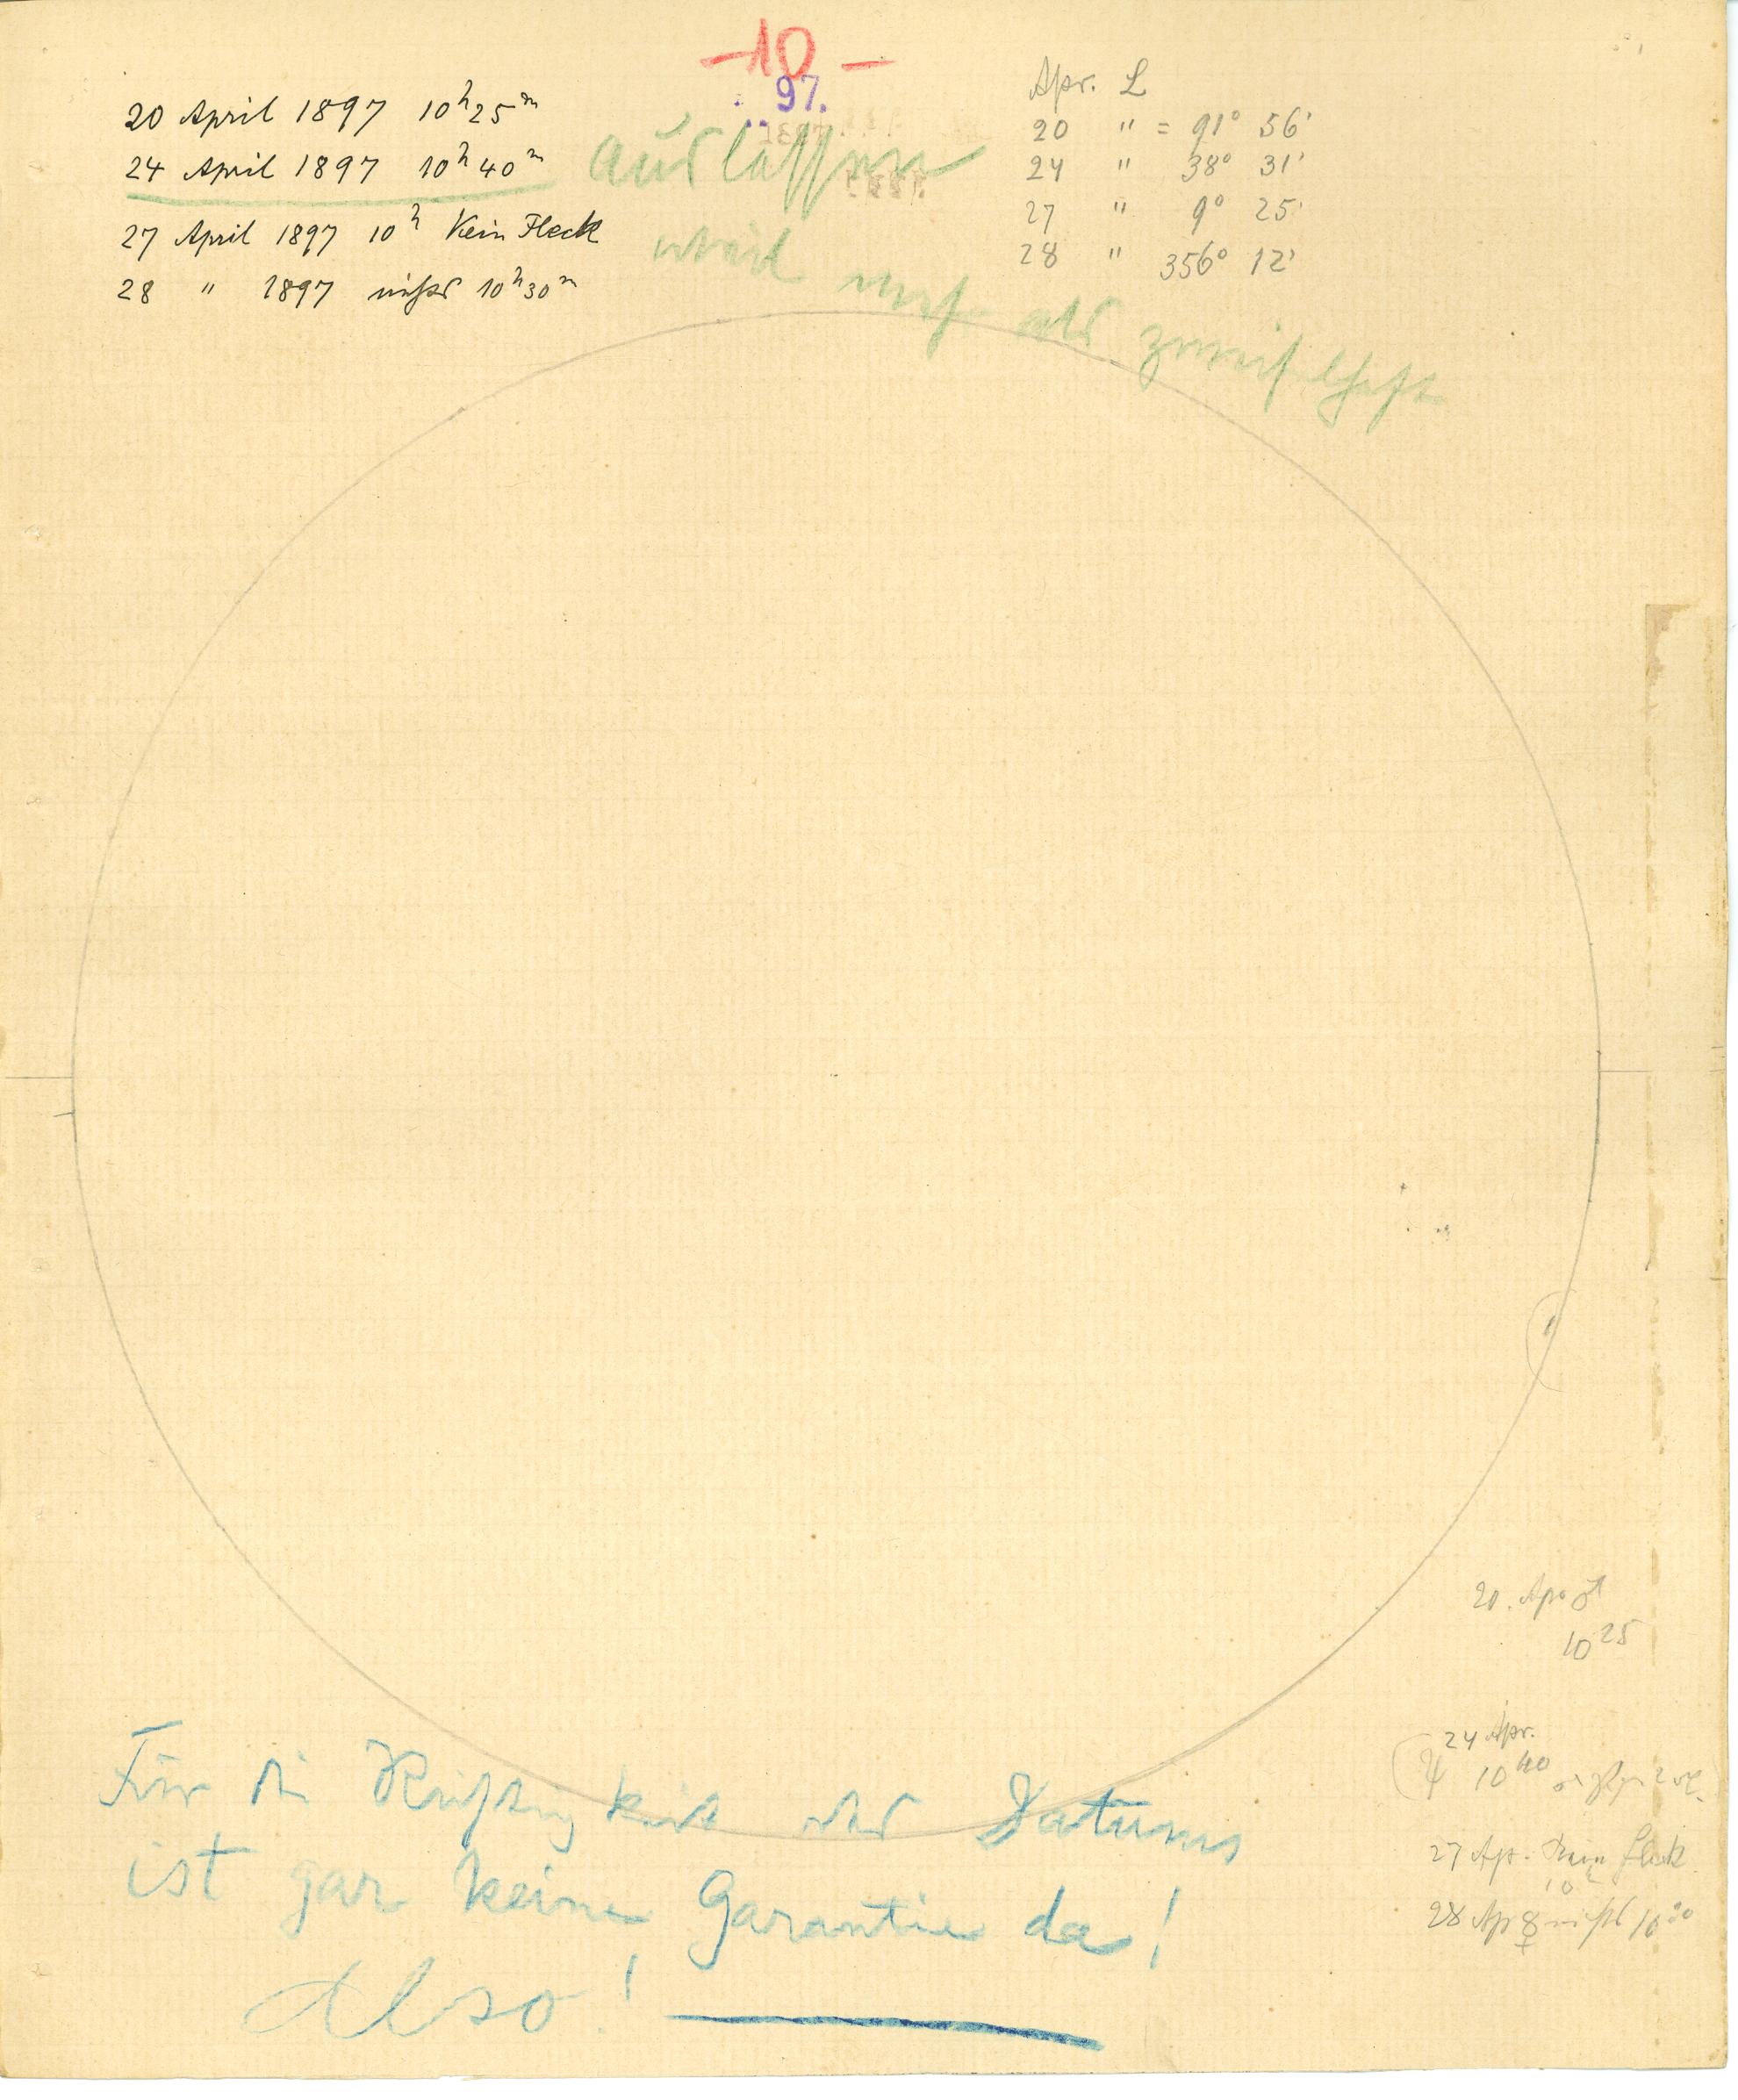 -10-
97.
20 April 1897 10h 25m
24 April 1897 10h 40m
27 April 1897 10h Kein Fleck
28 " 1897 nichts 10h 30m
auslassen
weil mehr als zweifelhaft
Apr. L
20 " = 91° 56'
24 " 38° 31'
27 " 9° 25'
28 " 356° 12'
20. Apr ♂
10 25
24 Apr.
10 40
27 Ap. Kein Fleck
10h
28 Ap ☿ nichts 10 30
Für die Richtigkeit des Datums
ist gar keine Garantie da!
Also!